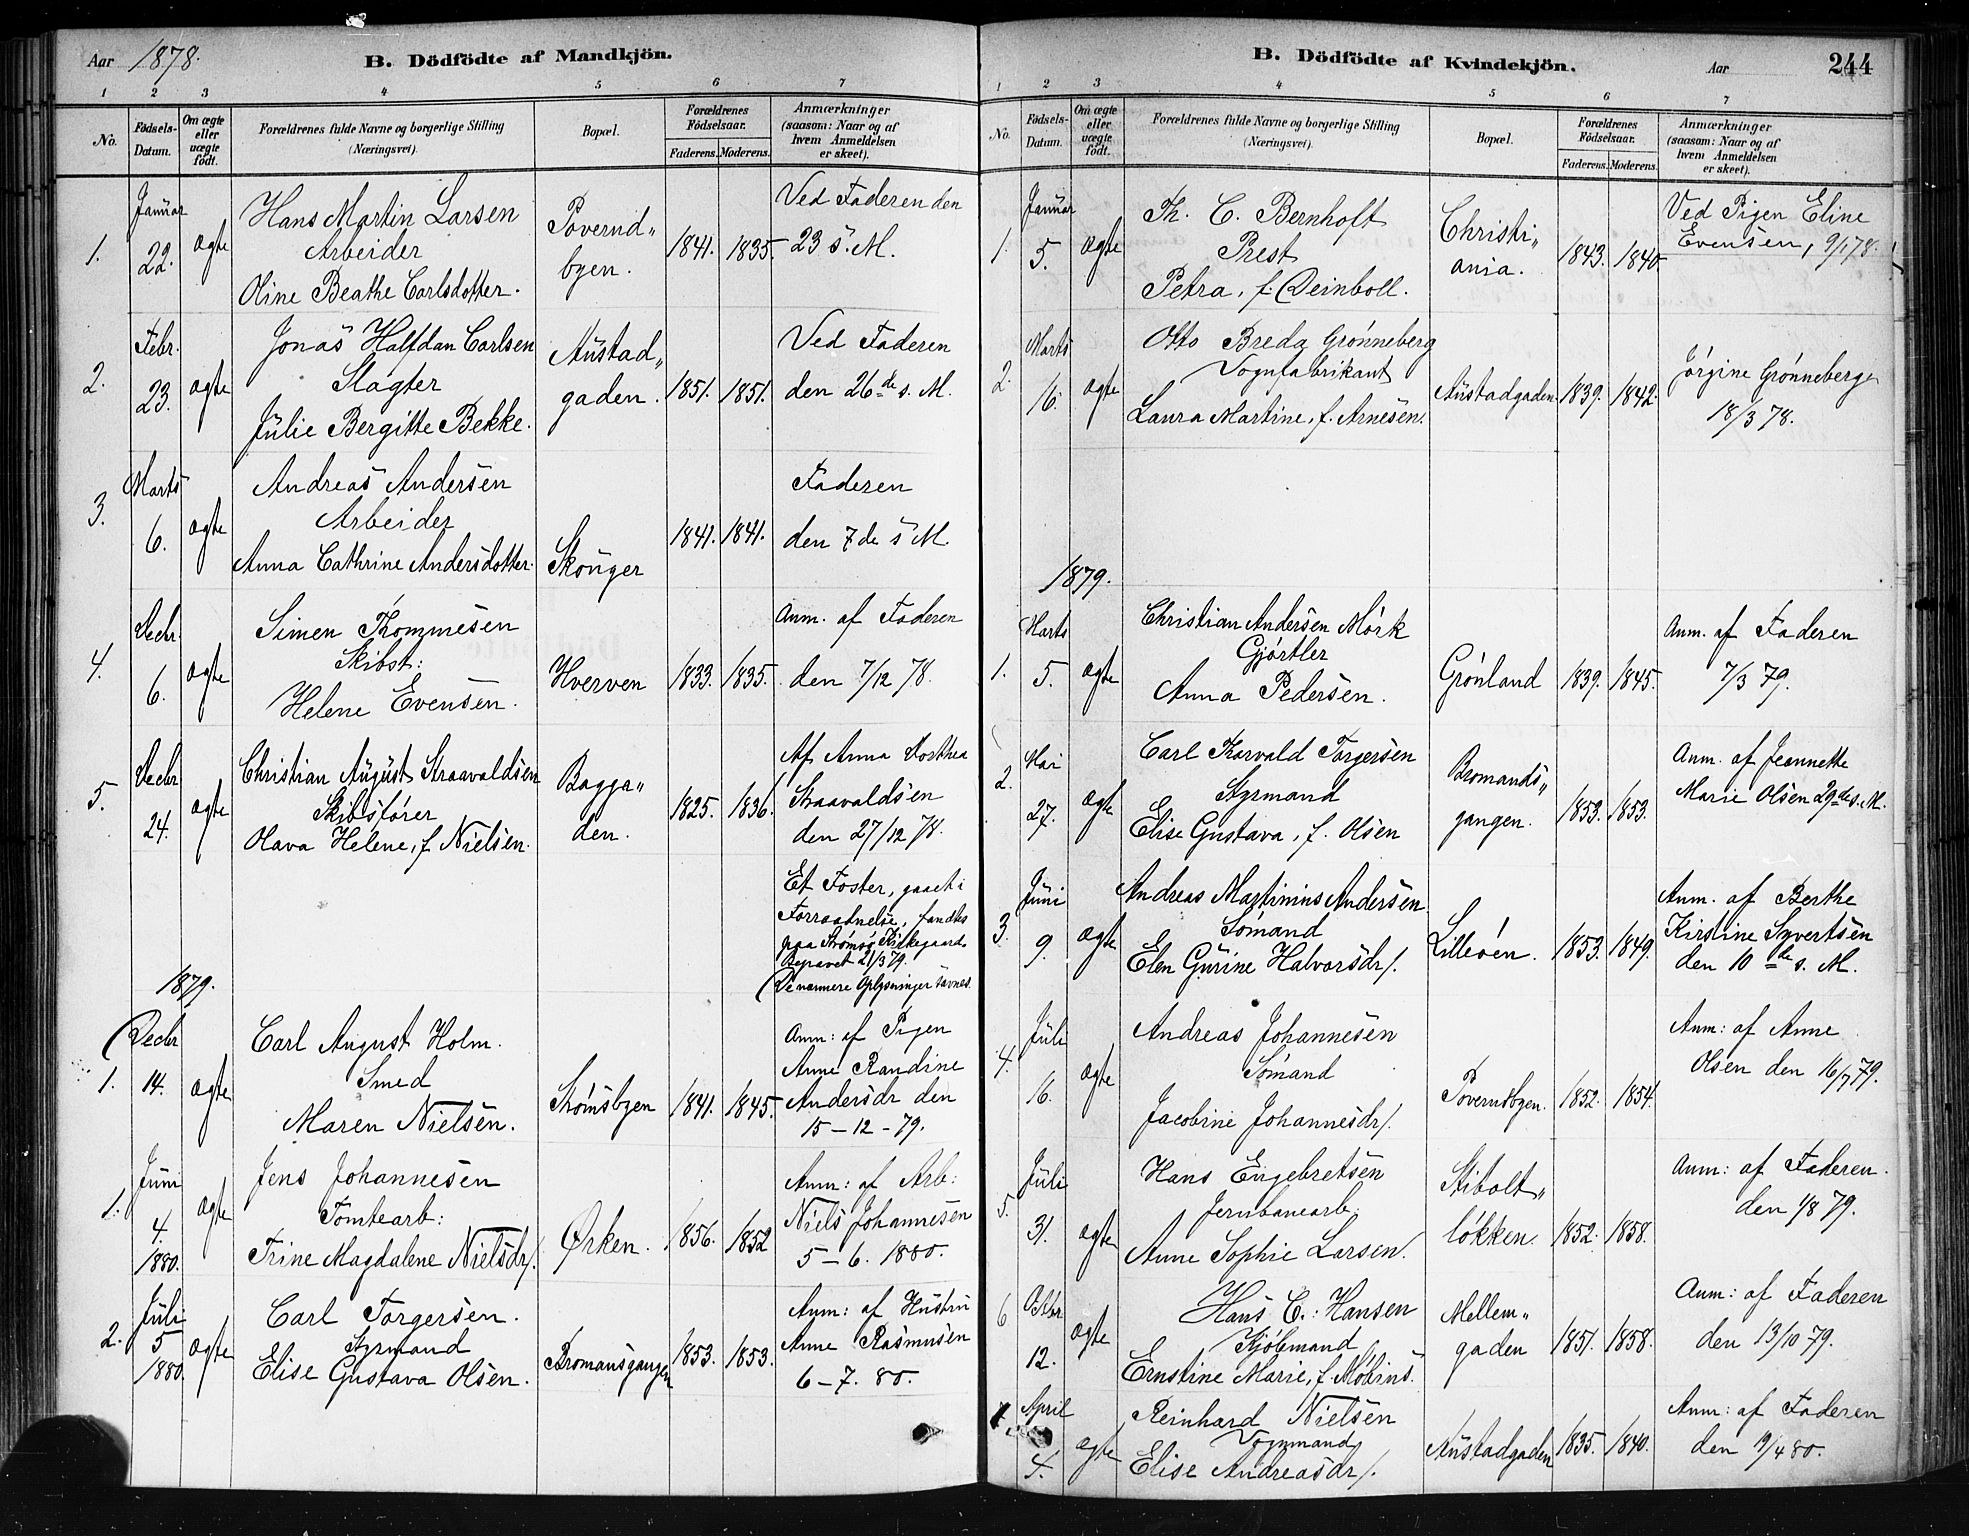 Aar 1878.
B. Dödfödte af Mandkjön.
1 2 3 4 5 6 7
No.
Födsels-Datum.
Om ægte eller uægte födt.
Forældrenes fulde Navne og borgerlige Stilling
(Næringsvei).
Bopæl.
Forældrenes Födselsaar.
Faderens. Moderens.
Anmærkninger
(saasom: Naar og af
hvem Anmeldelsen
er skeet).
1. Januar 22. ægte
Hans Martin Larsen
Arbeider
Oline Beathe Carlsdotter.
Poverud„
byen.
1841. 1835.
Ved Faderen den
23 s. M.
2. Febr. 23. ægte
Jonas Halfdan Carlsen
Slagter
Julie Bergitte Bekke.
Austad„
gaden.
1851. 1851.
Ved Faderen
den 26de s. M.
3. Marts 6. ægte
Andreas Andersen
Arbeider
Anna Cathrine Andersdotter.
Skouger
1841. 1841.
Faderen
den 7de s M.
4. Decbr. 6. ægte
Simen Thommesen
Skibst:
Helene Evensen.
Hverven
1833. 1835.
Anm. af Faderen
den 7/12 78.
5. Decbr 24. ægte
Christian August Straavaldsen
Skibsfører
Olava Helene, f. Nielsen.
Bagga„
den.
1825. 1836.
Af Anna Dorthea
Straavaldsen
den 27/12 78.
Et Foster, gaaet i
Forraadnelse, fandtes
paa Strømsø Kirkegaard.
Begravet 21/3 79.
(De nærmere Oplysninger savnes.
1879.
1. Decbr 14. ægte
Carl August Holm.
Smed
Maren Nielsen.
Strømsbyen
1841. 1845.
Anm: af Pigen
Anne Randine
Andersdr den
15-12-79.
1. Juni 4. 1880. ægte
Jens Johannesen
Tomtearb:
Trine Magdalene Nielsdr/.
Ørken.
1856. 1852
Anm: af Arb:
Niels Johannesen
5-6. 1880.
2. Juli 5 1880. ægte
Carl Torgersen.
Styrmand
Elise Gustava Olsen.
Bromansgangen
1853. 1853.
Anm: af Hustru
Anne Rasmusen
6-7. 80.
B. Dödfödte af Kvindekjön.
Aar
244
1 2 3 4 5 6 7
No.
Födsels-Datum.
Om ægte eller uægte födt.
Forældrenes fulde Navne og borgerlige Stilling
(Næringsvei).
Bopæl.
Forældrenes Födselsaar.
Faderens. Moderens.
Anmærkninger
(saasom: Naar og af
hvem Anmeldelsen
er skeet).
1. Januar 5. ægte
Th. C. Bernhoft
Prest
Petra, f. Deinboll.
Christi„
ania.
1843. 1840.
Ved Pigen Eline
Evensen, 9/1 78.
2. Marts 16. ægte
Otto Breda Grønneberg
Vognfabrikant
Laura Martine, f. Arnesen.
Austadgaden.
1839. 1842.
Jørgine Grønneberg
18/3 78.
1879.
1. Marts 5. ægte
Christian Andersen Mörk
Gjørtler
Anna Pedersen.
Grønland
1839. 1845.
Anm. af Faderen
7/3 79.
2. Mai 27. ægte
Carl Thorvald Torgersen
Styrmand
Elise Gustava, f. Olsen
Bromands„
gangen.
1853. 1853.
Anm. af Jeannette
Marie Olsen 29de s. M.
3. Juni 9. ægte
Andreas Martinius Andersen
Sømand
Elen Gurine Halvorsdr/.
Lilleøen.
1853. 1849.
Anm. af Berthe
Kirstine Syvertsen
den 10de s. M.
4. Juli 16. ægte
Andreas Johannesen
Sømand
Jacobine Johannesdr/.
Poverudbyen.
1852. 1854.
Anm: af Anne
Olsen den 16/7 79.
5. Juli 31. ægte
Hans Engebretsen
Jernbanearb.
Anne Sophie Larsen.
Stibolt„
løkken.
1852. 1858.
Anm: af Faderen
den 1/8 79.
6 Octbr 12. ægte
Hans C. Hansen
Kjøbmand
Ernstine Marie, f. Møbius.
Mellem„
gaden
1851. 1858.
Anm: af Faderen
den 13/10 79.
1. April 4. ægte
Reinhard Nielsen
Vognmand
Elise Andreasdr/.
Austadgaden
1835. 1840.
Anm: af Faderen
den 9/4 80.